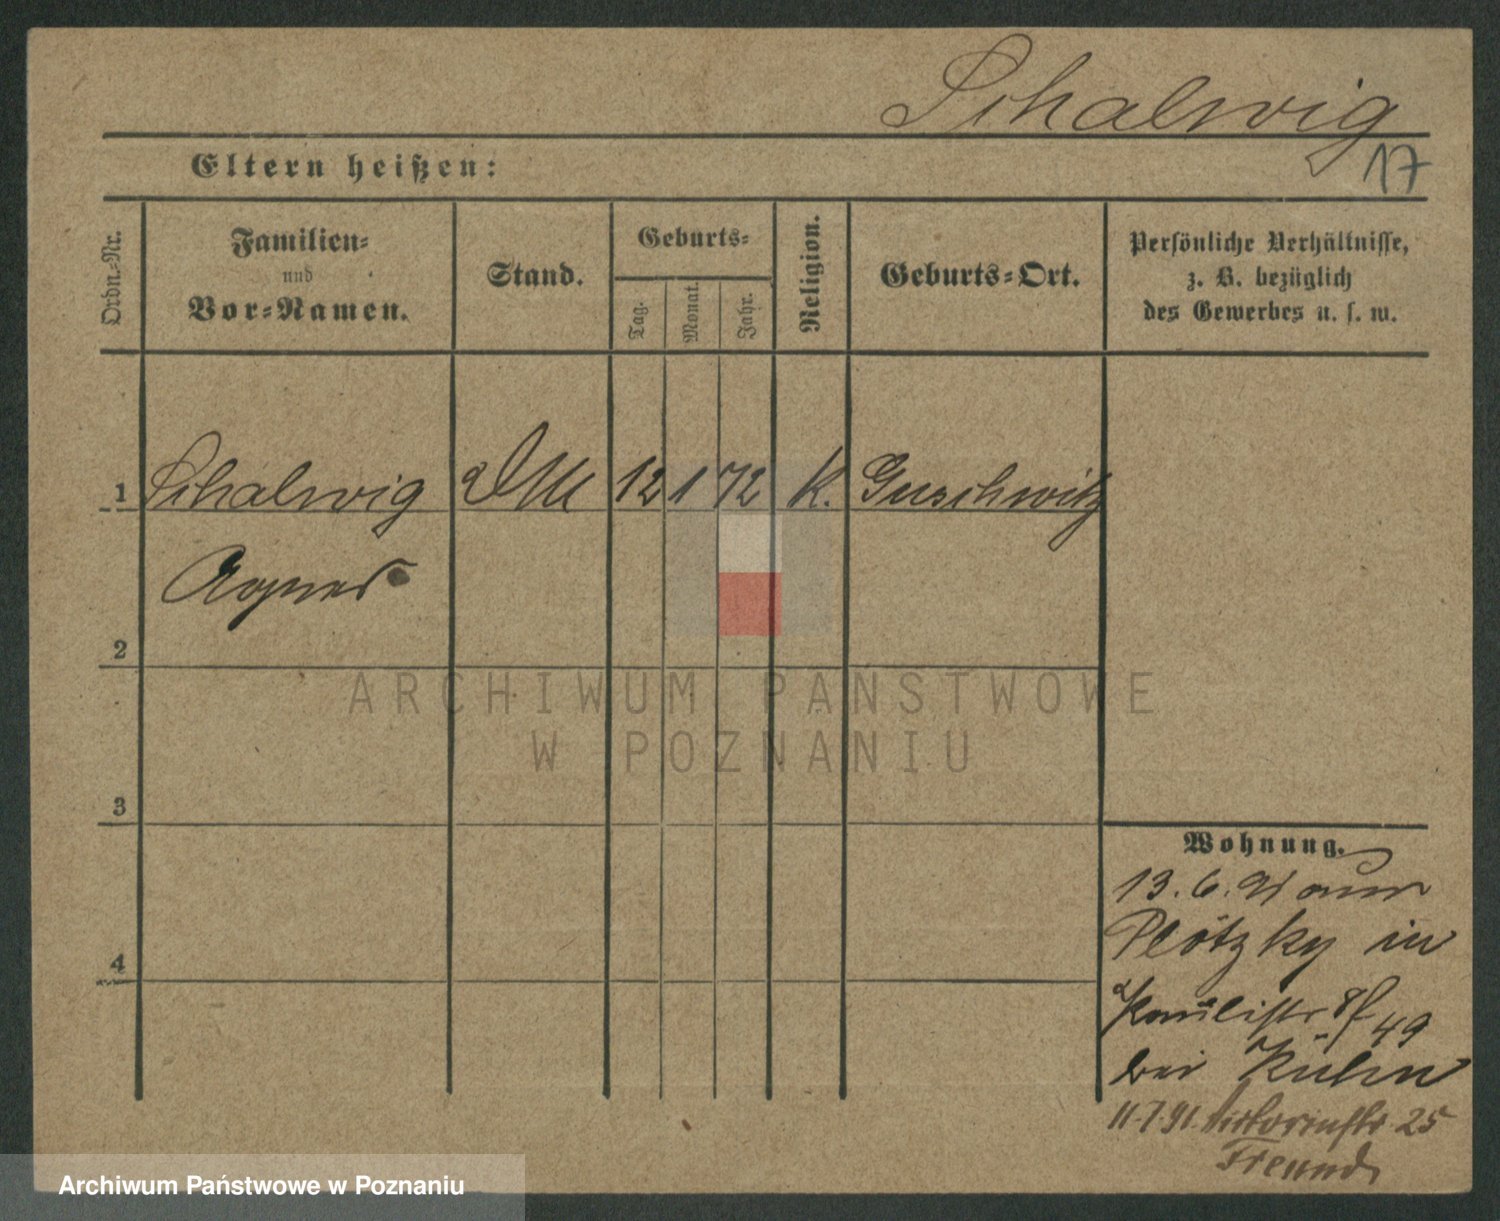 Schalwig
17
Eltern heißen:
Ordn.-Nr.
Familien-
und
Vor-Namen.
Stand.
Geburts-
Tag.
Monat.
Jahr.
Religion.
Geburts-Ort.
Persönliche Verhältnisse,
z. B. bezüglich
des Gewerbes u. s. w.
1 Schalwig 12 1 72 K. Guschwitz
Agnes
2
3
4
Wohnung.
13.6.91 aus
Plötzky in
Paulistr 8/49
bei Kühn
11.7.91. Victoriastr. 25
Freund
ARCHIWUM PAŃSTWOWE
W POZNANIU
Archiwum Państwowe w Poznaniu